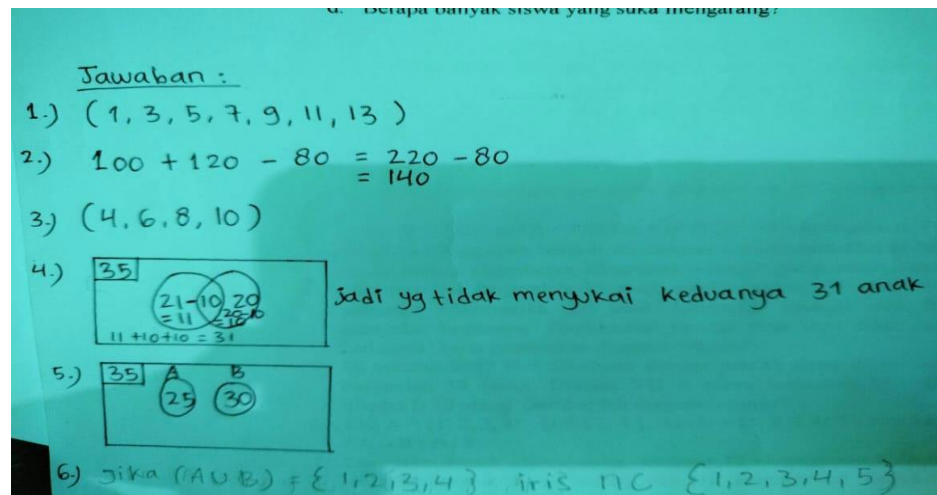 d. Berapa banyak siswa yang suka mengarang?
Jawaban :
1.) (1, 3, 5, 7, 9, 11, 13 )
2.) 100 + 120 - 80 = 220 - 80
= 140
3.) (4, 6, 8, 10)
4.) 35
21-10 20
= 11 20-10
= 10
11 +10+10 = 31
jadi yg tidak menyukai keduanya 31 anak
5.) 35 A B
25 30
6.) Jika (AUB) = { 1, 2, 3, 4 } iris nC { 1, 2, 3, 4, 5 }